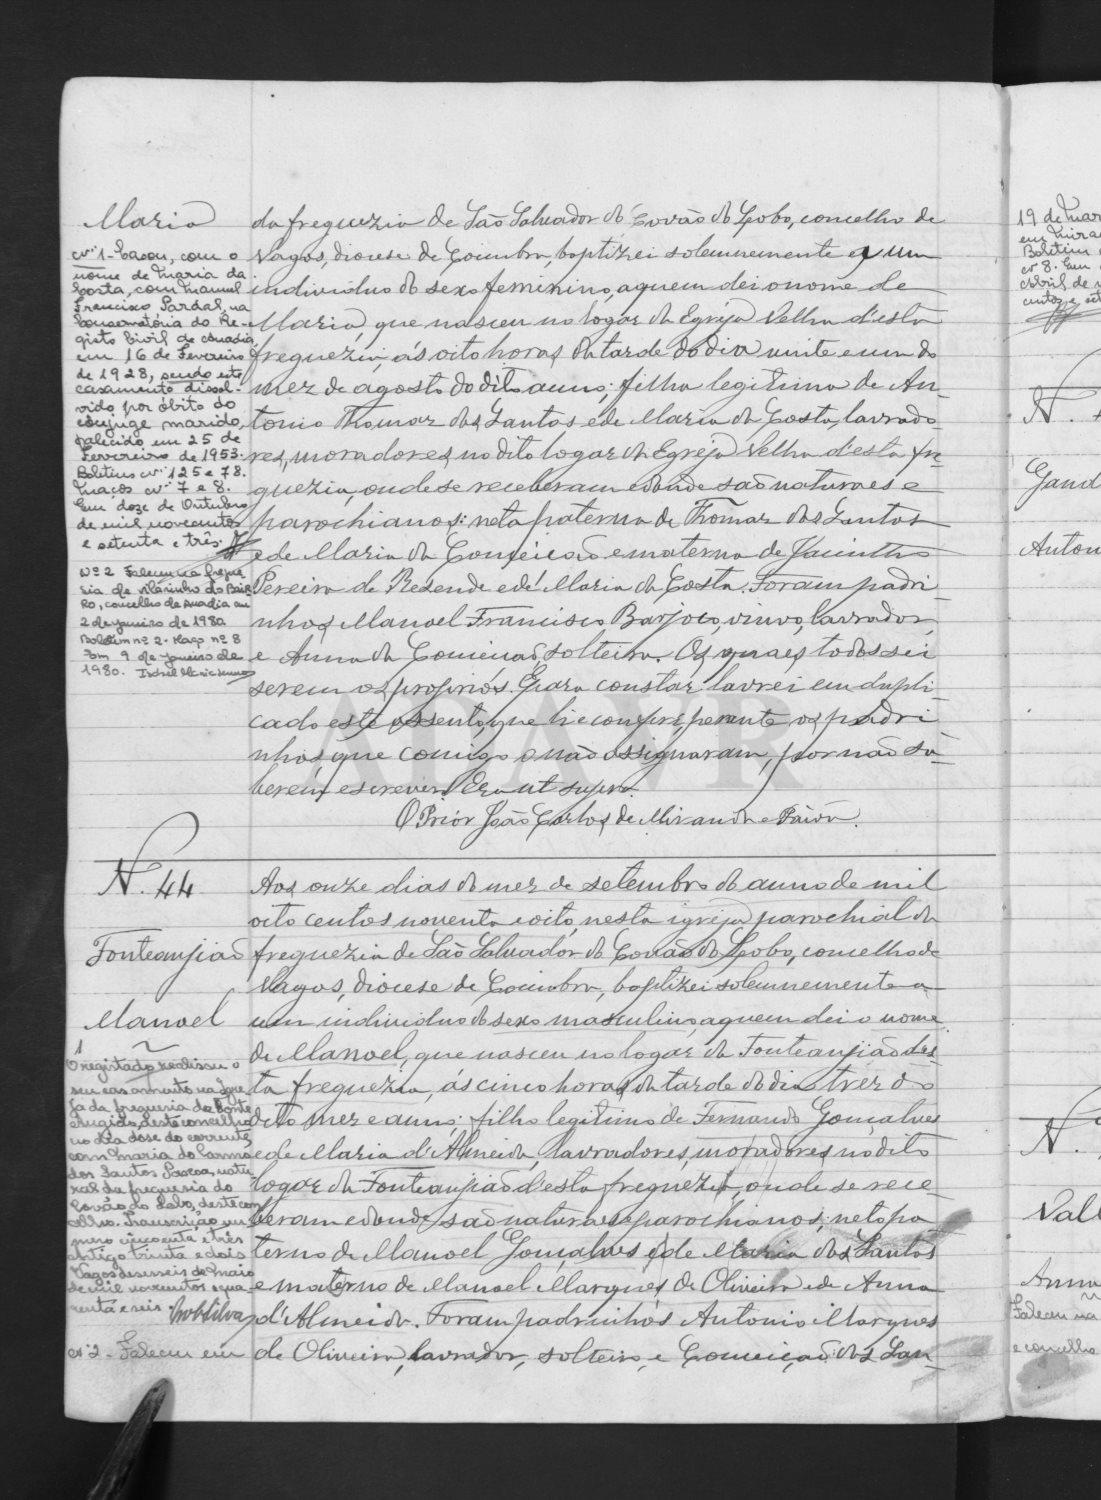 Maria
nº 1 - Casou, com o
nome de Maria da
Costa, com Manuel
Francisco Pardal, na
Conservatória do Re-
gisto Civil de Anadia,
em 16 de Fevereiro
de 1928, sendo este
casamento dissol-
vido por óbito do
cônjuge marido,
falecido em 25 de
Fevereiro de 1953.
Boletins nº 125 e 78.
Maços nº 7 e 8.
Em doze de Outubro
de mil novecentos
e setenta e três.
Nº 2 Faleceu na fregue-
sia de Vilarinho do Bair-
ro, concelho de Anadia em
2 de janeiro de 1980
Boletim nº 2. Maço nº 8
Em 9 de janeiro de
1980.
da freguezia de São Salvador de Covão do Lobo, concelho de
Vagos, diocese de Coimbra, baptizei solemnemente a um
individuo do sexo feminino, a quem dei o nome de
Maria, que nasceu no logar da Egreja Velha d'esta
freguezia, ás oito horas da tarde do dia vinte e um do
mez de agosto do dito anno; filha legitima de An-
tonio Thomaz dos Santos e de Maria da Costa, lavrado-
res, moradores no dito logar da Egreja Velha d'esta fre-
guezia, onde se receberam e donde são naturaes e
parochianos; neta paterna de Thomaz dos Santos
e de Maria da Conceição e materna de Jacintho
Pereira de Rezende e de Maria da Costa. Foram padri-
nhos Manoel Francisco Barjoco, viuvo, lavrador,
e Anna da Conceição, solteira. Os quaes todos sei
serem os proprios. E para constar lavrei em dupli-
cado este assento, que li e conferi perante os padri-
nhos que comigo o não assignaram, por não sa-
berem escrever. Era ut supra.
O Prior João Carlos de Miranda e Paiva.
ADAVR
N. 44
Fonteanjião
Manoel
1
O registado realisou o
seu casamento na Igre-
ja da freguesia da Fonte
Angião, deste concelho
no dia dose do corrente,
com Maria do Carmo
dos Santos Pascoa, natu-
ral da freguesia do
Covão do Lobo, deste con-
celho. Transcrição nu-
mero cincoenta e três
artigo trinta e dois
Vagos, desasseis de Maio
de mil novecentos e qua-
renta e seis.
nº 2 - Faleceu em
Aos onze dias do mez de setembro do anno de mil
oito centos noventa e oito, nesta igreja parochial da
freguezia de São Salvador do Covão do Lobo, concelho de
Vagos, diocese de Coimbra, baptizei solemnemente a
um individuo do sexo masculino, a quem dei o nome
de Manoel, que nasceu no logar da Fonteanjião des-
ta freguezia, ás cinco horas da tarde do dia trez do
dito mez e anno; filho legitimo de Fernando Gonçalves
e de Maria d'Almeida, lavradores, moradores no dito
logar da Fonteanjião d'esta freguezia, onde se rece-
beram e donde são naturaes e parochianos; neto pa-
terno de Manoel Gonçalves e de Maria dos Santos
e materno de Manoel Marques de Oliveira e de Anna
d'Almeida. Foram padrinhos Antonio Marques
de Oliveira, lavrador, solteiro, e Conceição dos San-
19 de
em
Boletim
nº 8. Em
Abril de
N.
Gand
Anton
N.
Vall
Anna
Faleceu na
e concelho